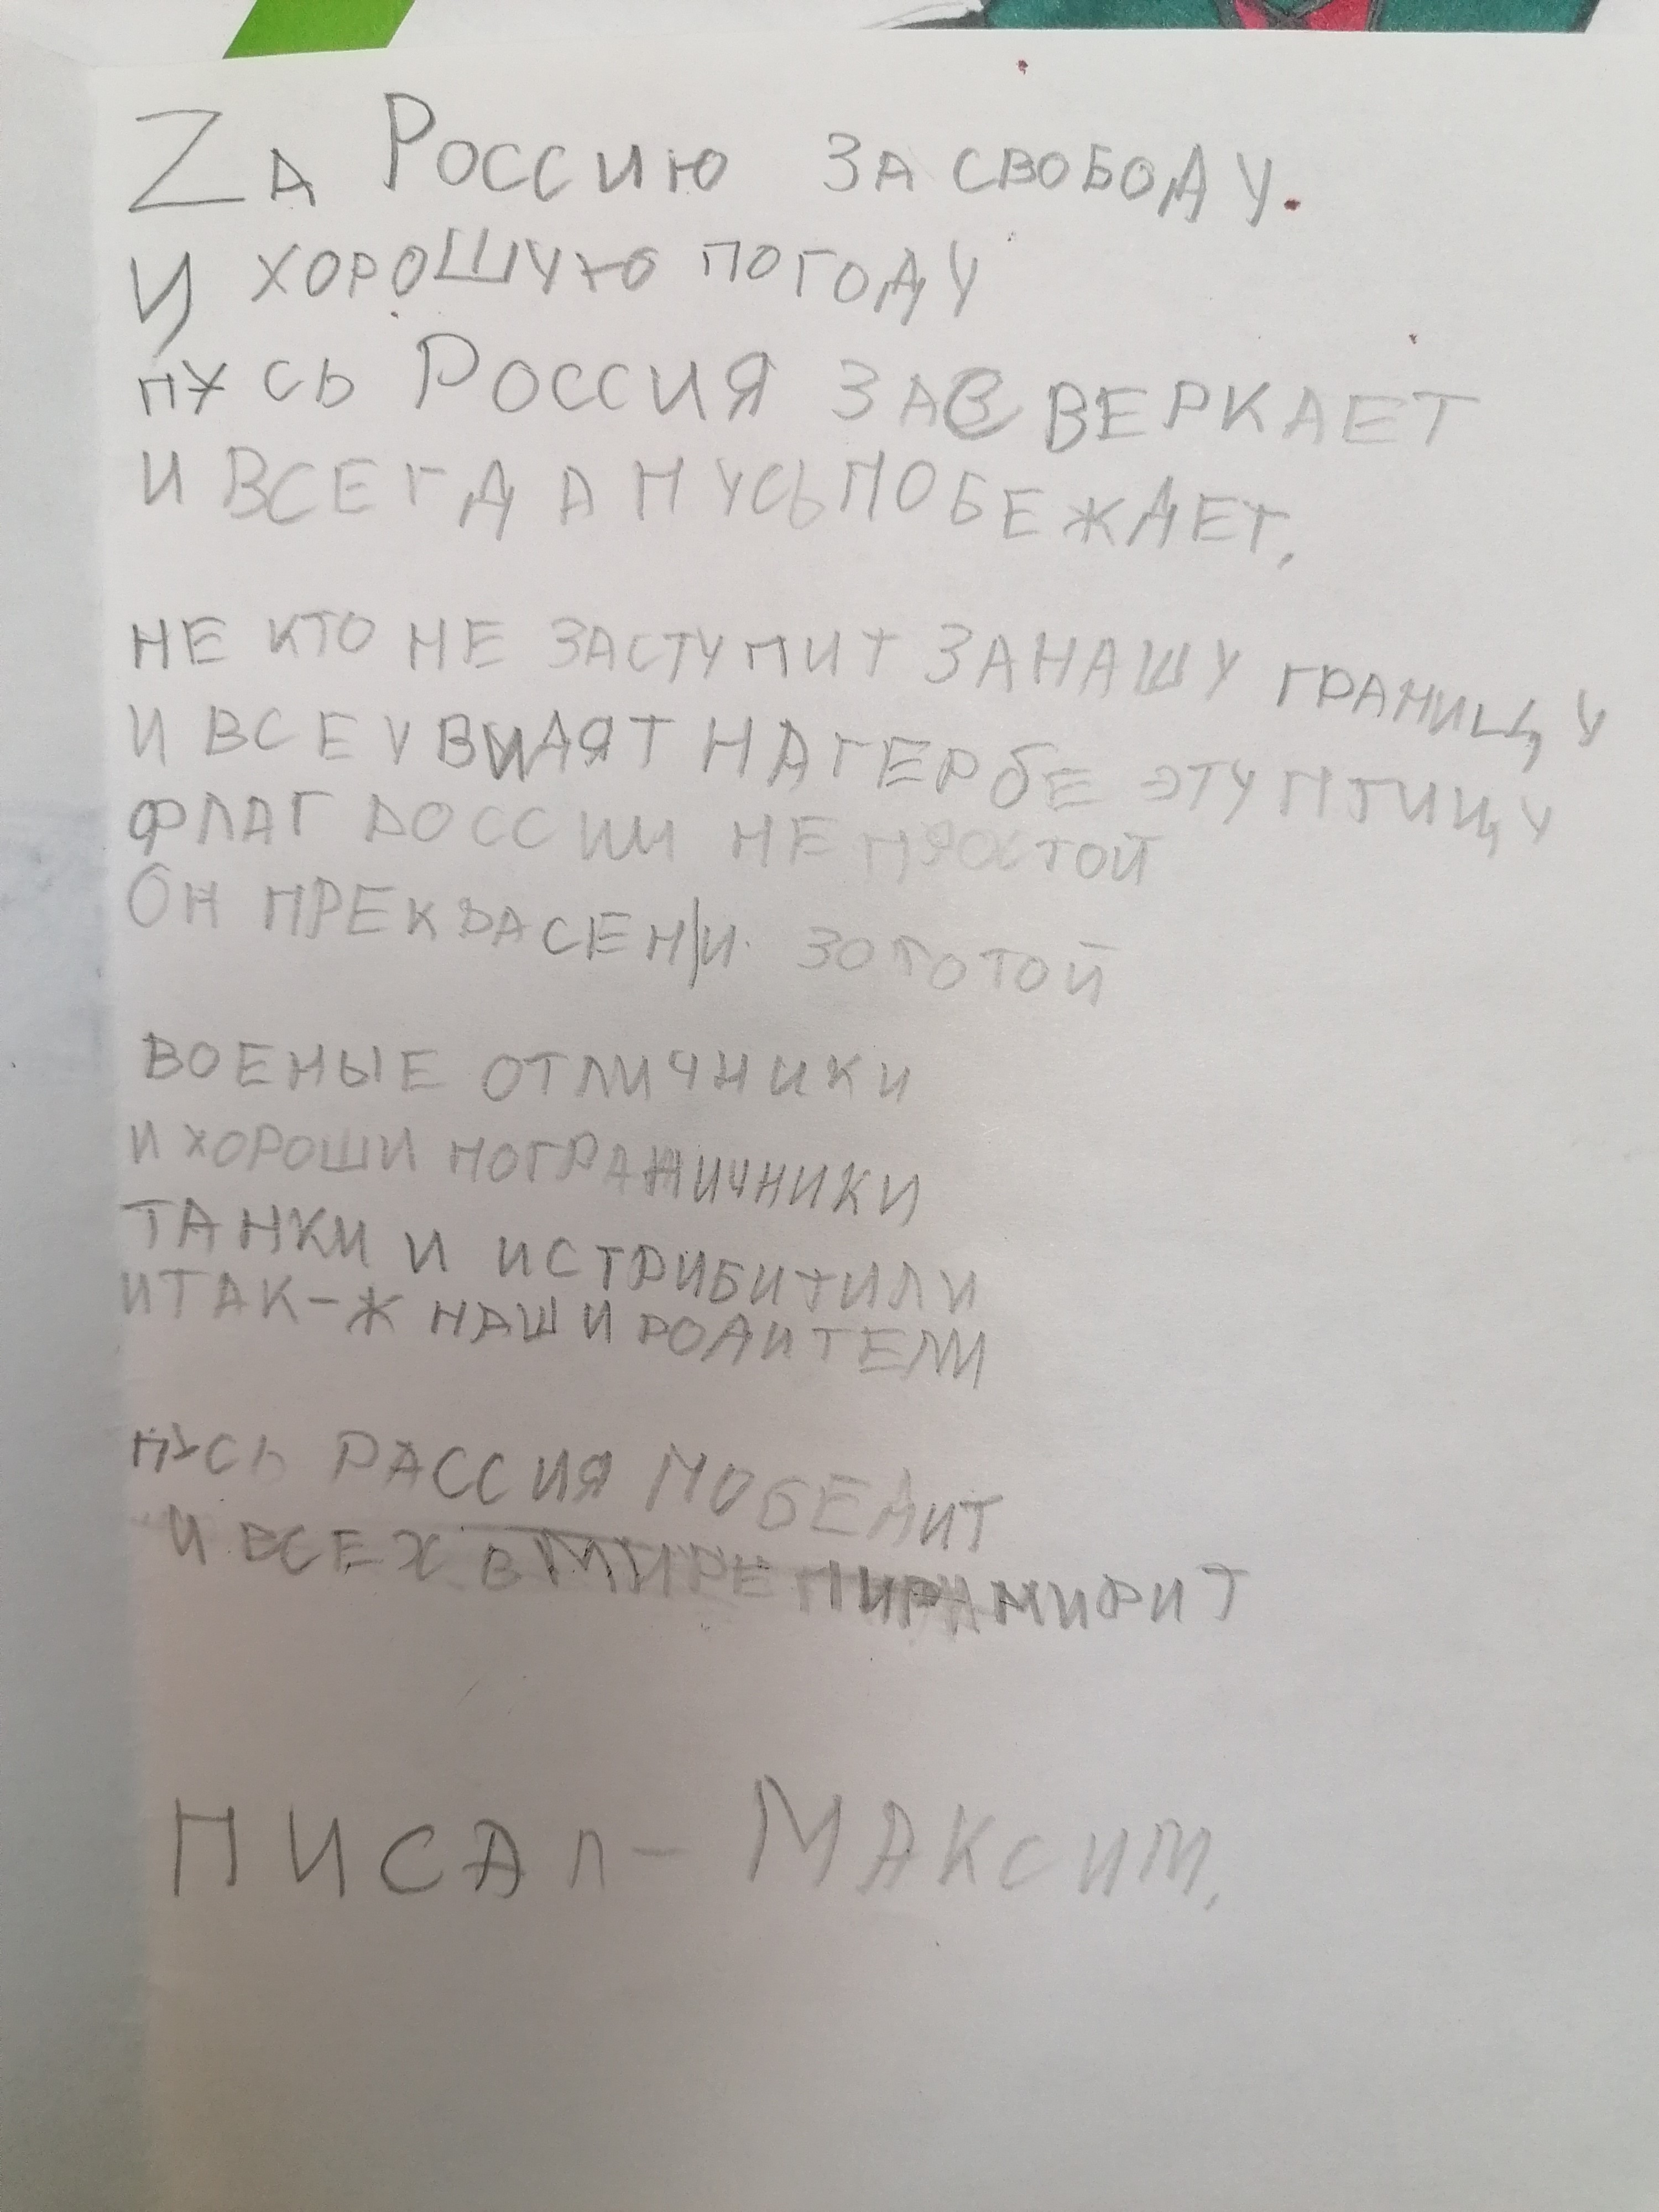 Zа Россию за свободу.
И хорошую погоду
пусь Россия засверкает
и всегда пусь побежает.
не кто не заступит за нашу границу
и все увидят на гербе эту птицу
флаг россии не простой
Он прекрасен и золотой
военые отличники
и хороши пограничники
танки и истрибитили
и так-ж наши родители
пусь рассия победит
и всех в мире пирамирит
Писал - Максим.